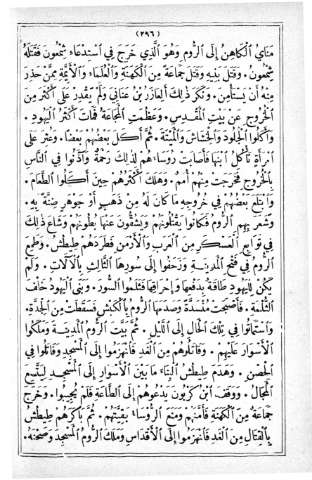 (٢٩٦)
مناي الكاهن إلى الروم وهو الذي خرج في استدعاء شمعون فقتله
شمعون . وقتل بنيه وقتل جماعة من الكهنة والعلماء والأيمة ممن حذر
منه أن يستأمن . ونكر ذلك ألعازر بن عناني ولم يقدر على أكثر من
الخروج عن بيت المقدس . وعظمت المجاعة فمات أكثر اليهود .
وأكلوا الجلود والخشاش والميتة . ثم أكل بعضهم بعضا . وعثر على
امرأة تأكل ابنها فأصابت رؤساءهم لذلك رحمة وأذنوا في الناس
بالخروج فخرجت منهم أمم . وهلك أكثرهم حين أكلوا الطعام .
وابتلع بعضهم في خروجه ما كان له من ذهب أو جوهر ضنة به .
وشعر بهم الروم فكانوا يقتلونهم ويشقون عنها بطونهم وشاع ذلك
في توابع العسكر من العرب والأرمن فطردهم طيطش . وطمع
الروم في فتح المدينة وزحفوا إلى سورها الثالث بالآلات . ولم
يكن لليهود طاقة بدفعها وإحراقها فثلموا السور . وبنى اليهود خلف
الثلمة . فأصبحت منسدة وصدمها الروم بالكبش فسقطت من الحدة .
واستماتوا في تلك الحال إلى الليل . ثم بيت الروم المدينة وملكوا
الأسوار عليهم . وقاتلوهم من الغد فانهزموا إلى المسجد وقاتلوا في
الحصن . وهدم طيطش البناء ما بين الأسوار إلى المسجد ليتسع
المجال . ووقف ابن كريون يدعوهم إلى الطاعة فلم يجيبوا . وخرج
جماعة من الكهنة فأمنهم ومنع الرؤساء بقيتهم . ثم باكرهم طيطش
بالقتال من الغد فانهزموا إلى الأقداس وملك الروم المسجد وصحنه .